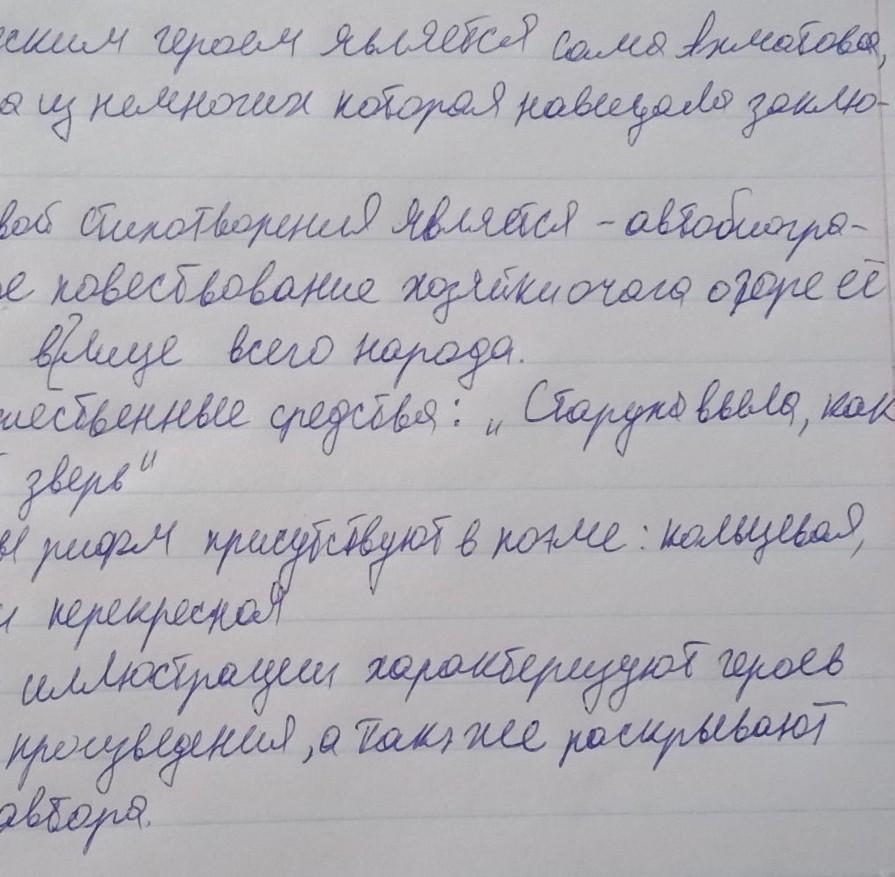 ским героем является сама Ахматова,
а из немногих которая навещала заклю-
вой стихотворения является - автобиогра-
е повествование хозяйки очага о горе её
в лице всего народа.
жественные средства: „Старуха выла, как
зверь"
ы рифм присутствуют в поэме: кольцевая,
и перекресная
иллюстрации характеризуют героев
произведения, а также раскрывают
автора.